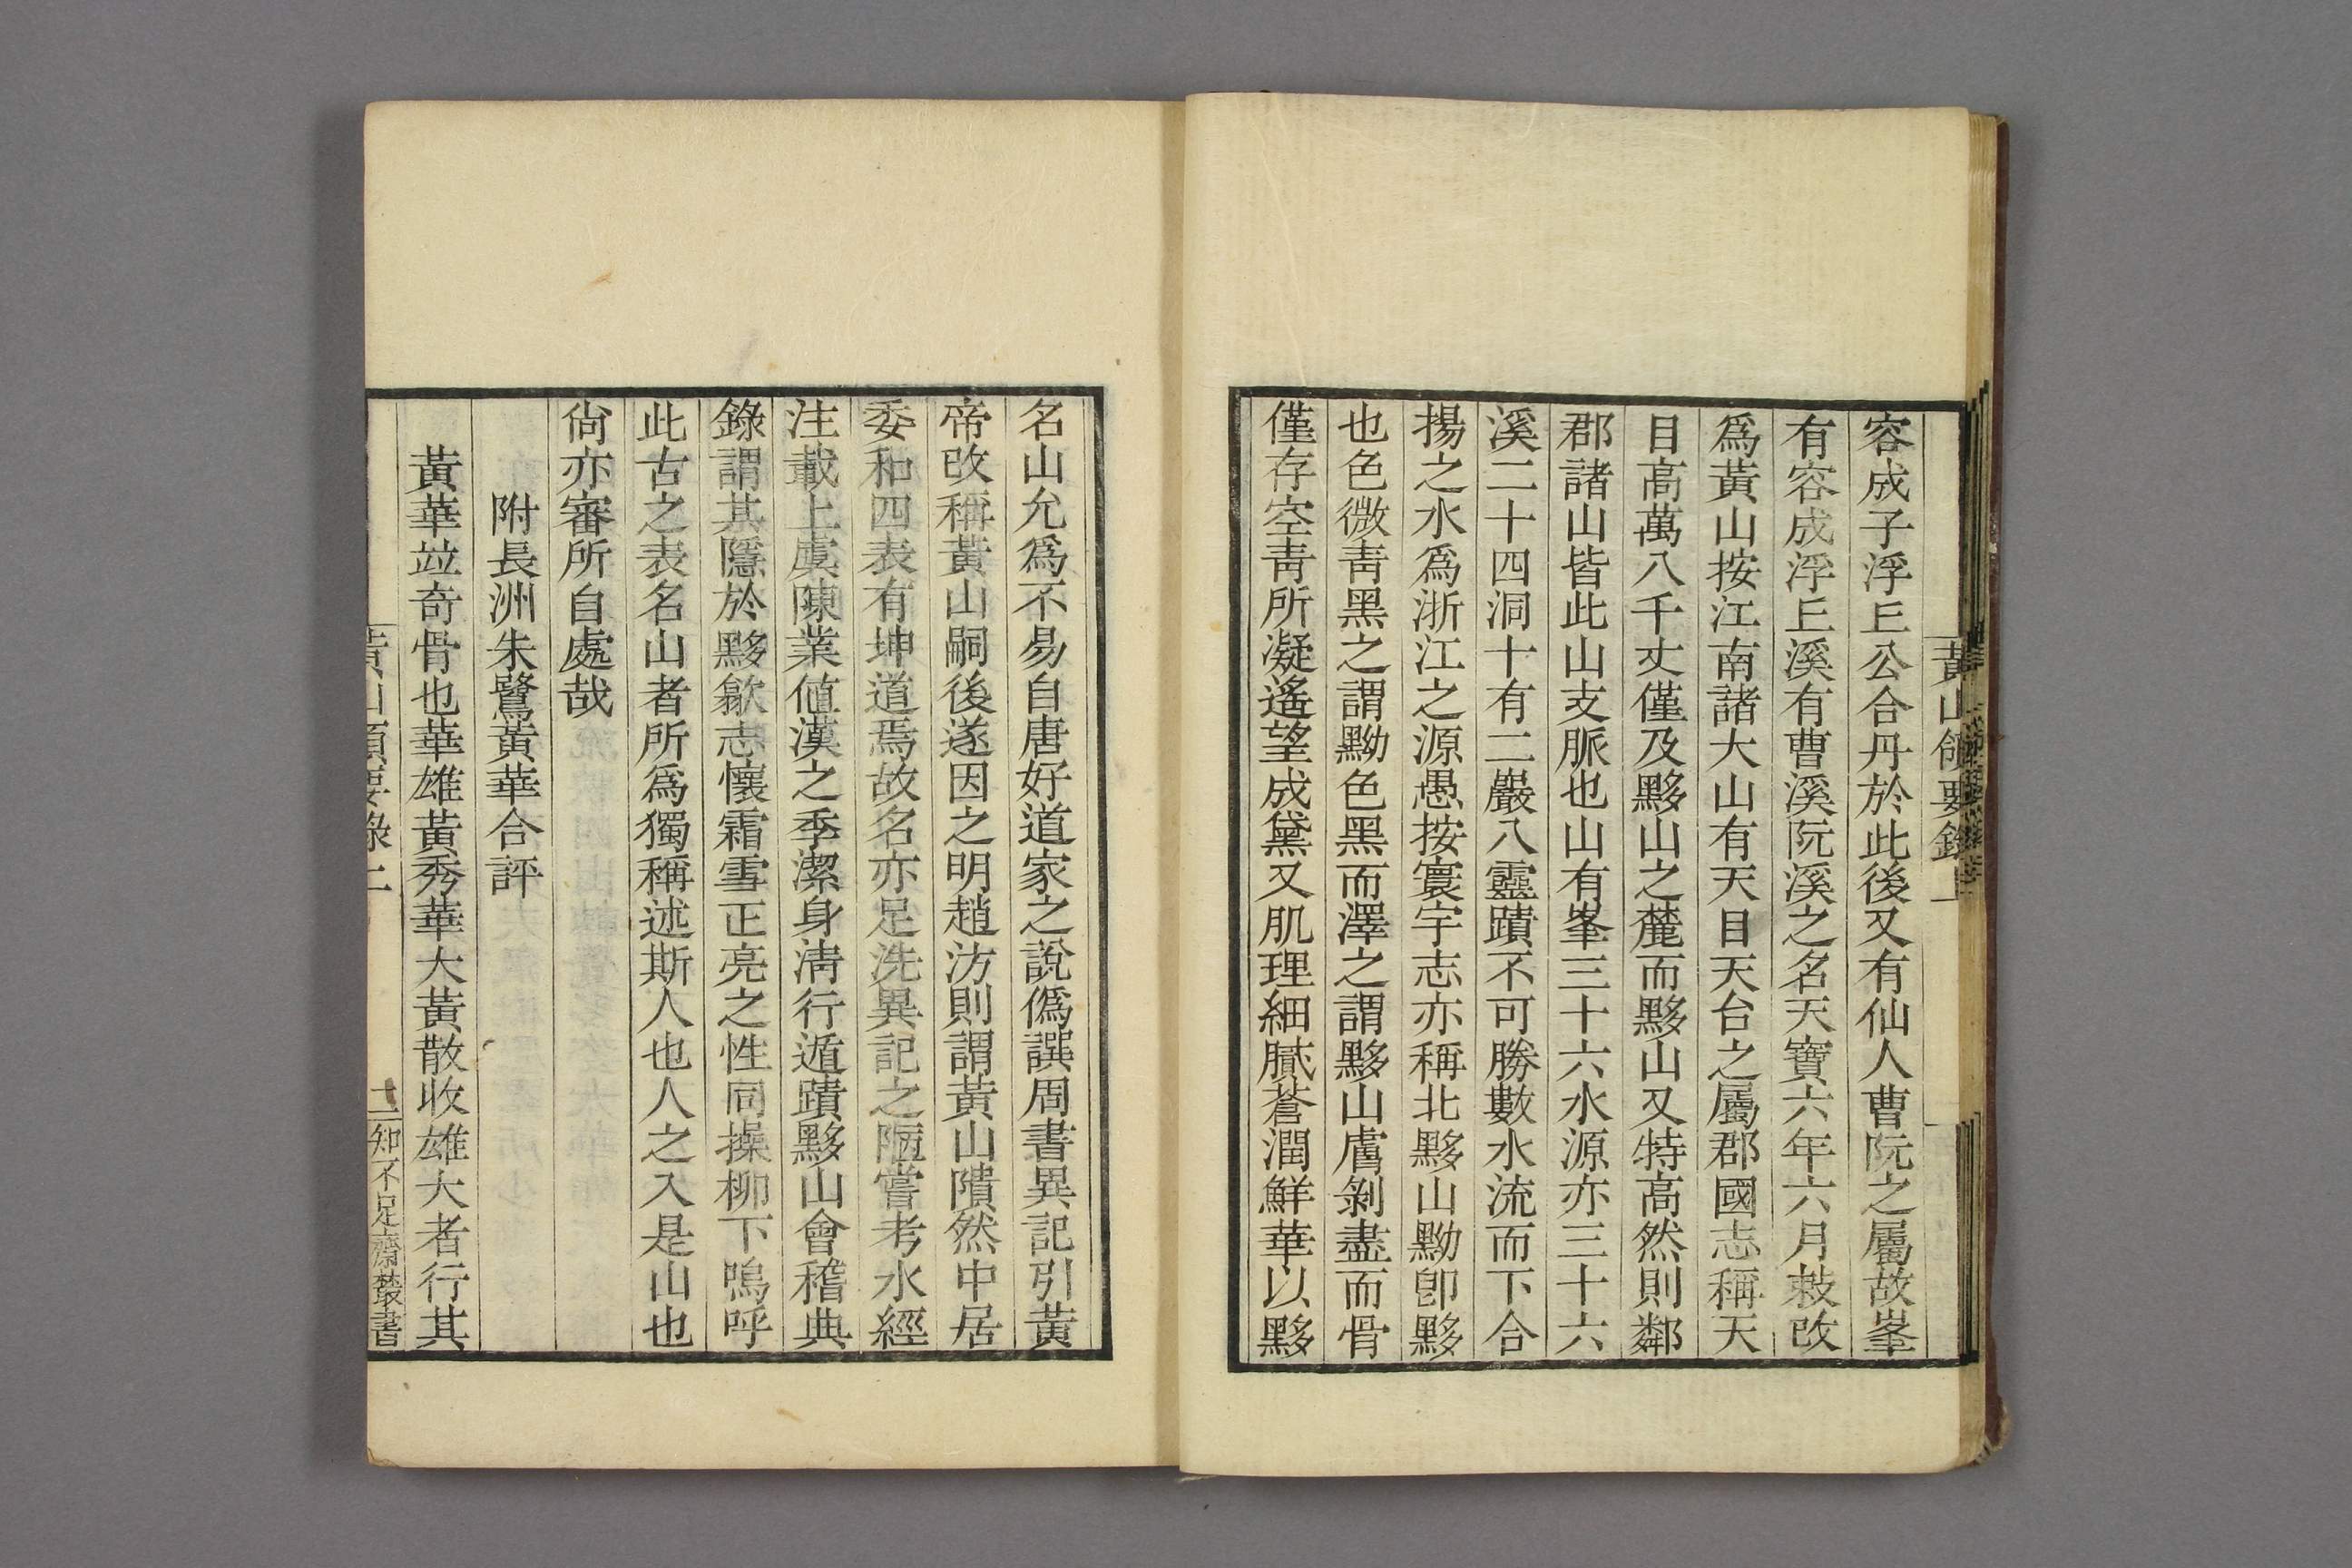 黃山領要錄上
容成子浮丘公合丹於此後又有仙人曹阮之屬故峯
有容成浮丘溪有曹溪阮溪之名天寶六年六月敕改
爲黃山按江南諸大山有天目天台之屬郡國志稱天
目高萬八千丈僅及黟山之麓而黟山又特高然則鄰
郡諸山皆此山支脈也山有峯三十六水源亦三十六
溪二十四洞十有二巖八靈蹟不可勝數水流而下合
揚之水爲浙江之源愚按寰宇志亦稱北黟山黝卽黟
也色微靑黑之謂黝色黑而澤之謂黟山膚剝盡而骨
僅存空靑所凝遙望成黛又肌理細膩蒼潤鮮華以黟
名山允爲不易自唐好道家之說僞譔周書異記引黃
帝改稱黃山嗣後遂因之明趙汸則謂黃山隤然中居
委和四表有坤道焉故名亦足洗異記之陋嘗考水經
注載上虞陳業値漢之季潔身淸行遁蹟黟山會稽典
錄謂其隱於黟歙志懷霜雪正亮之性同操柳下嗚呼
此古之表名山者所爲獨稱述斯人也人之入是山也
尙亦審所自處哉
附長洲朱鷺黃華合評
黃華竝奇骨也華雄黃秀華大黃散收雄大者行其
黃山領要錄上
十二
知不足齋叢書